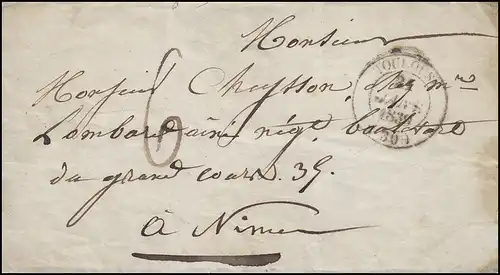 Monsieur
Monsieur Cheysson, chez mr
Lombard ainé négt boulevart
du grand cours. 39.
à Nimes
6
TOULOUSE
(30)